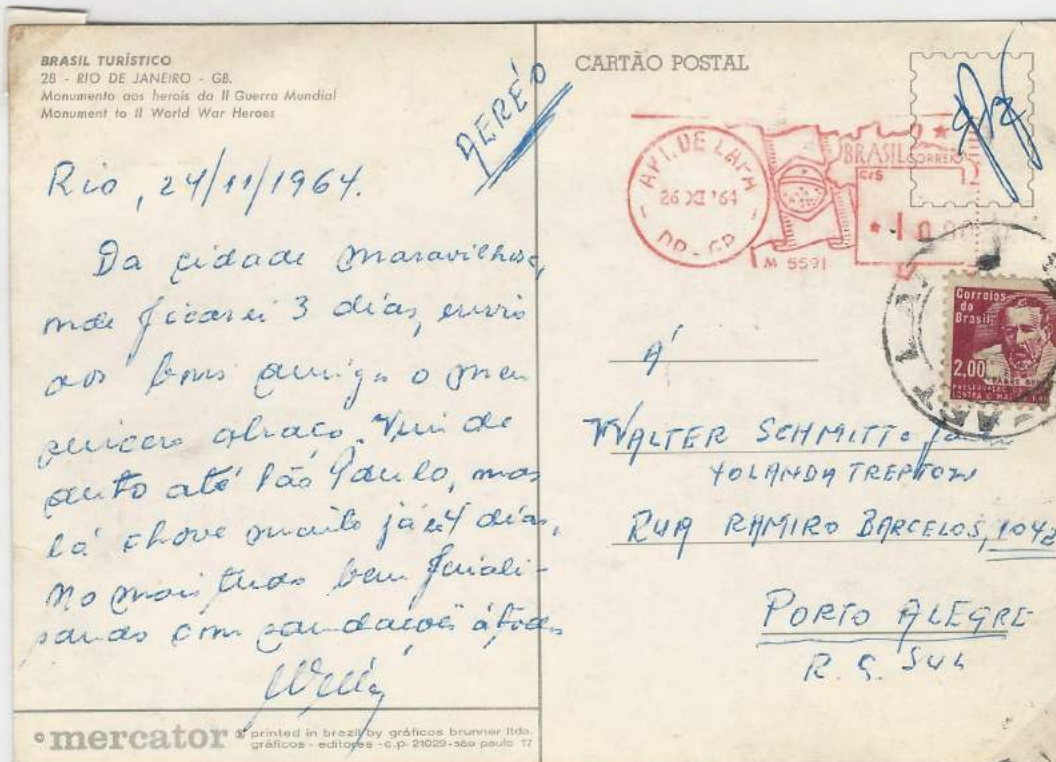 BRASIL TURÍSTICO
28 - RIO DE JANEIRO - GB.
Monumento aos herois da II Guerra Mundial
Monument to II World War Heroes
AERÉO
Rio, 24/11/1964.
Da cidade maravilhosa,
onde ficarei 3 dias, envio
aos bons amigos o meu
sincero abraço. Vim de
auto até São Paulo, mas
lá chove muito já 4 dias,
No mais tudo bem finali-
sando com saudações á todos
Willy
© mercator ® printed in brazil by gráficos brunner ltda.
gráficos - editores - c.p. 21029 - são paulo 17
CARTÃO POSTAL
BRASIL CORREIO
26 XI '64
DR-GB
CrS
M 5591
Correios
do
Brasil
2,00
Á
WALTER SCHMITT
YOLANDA TREPTOW
RUA RAMIRO BARCELOS, 1042
PORTO ALEGRE
R. G. SUL